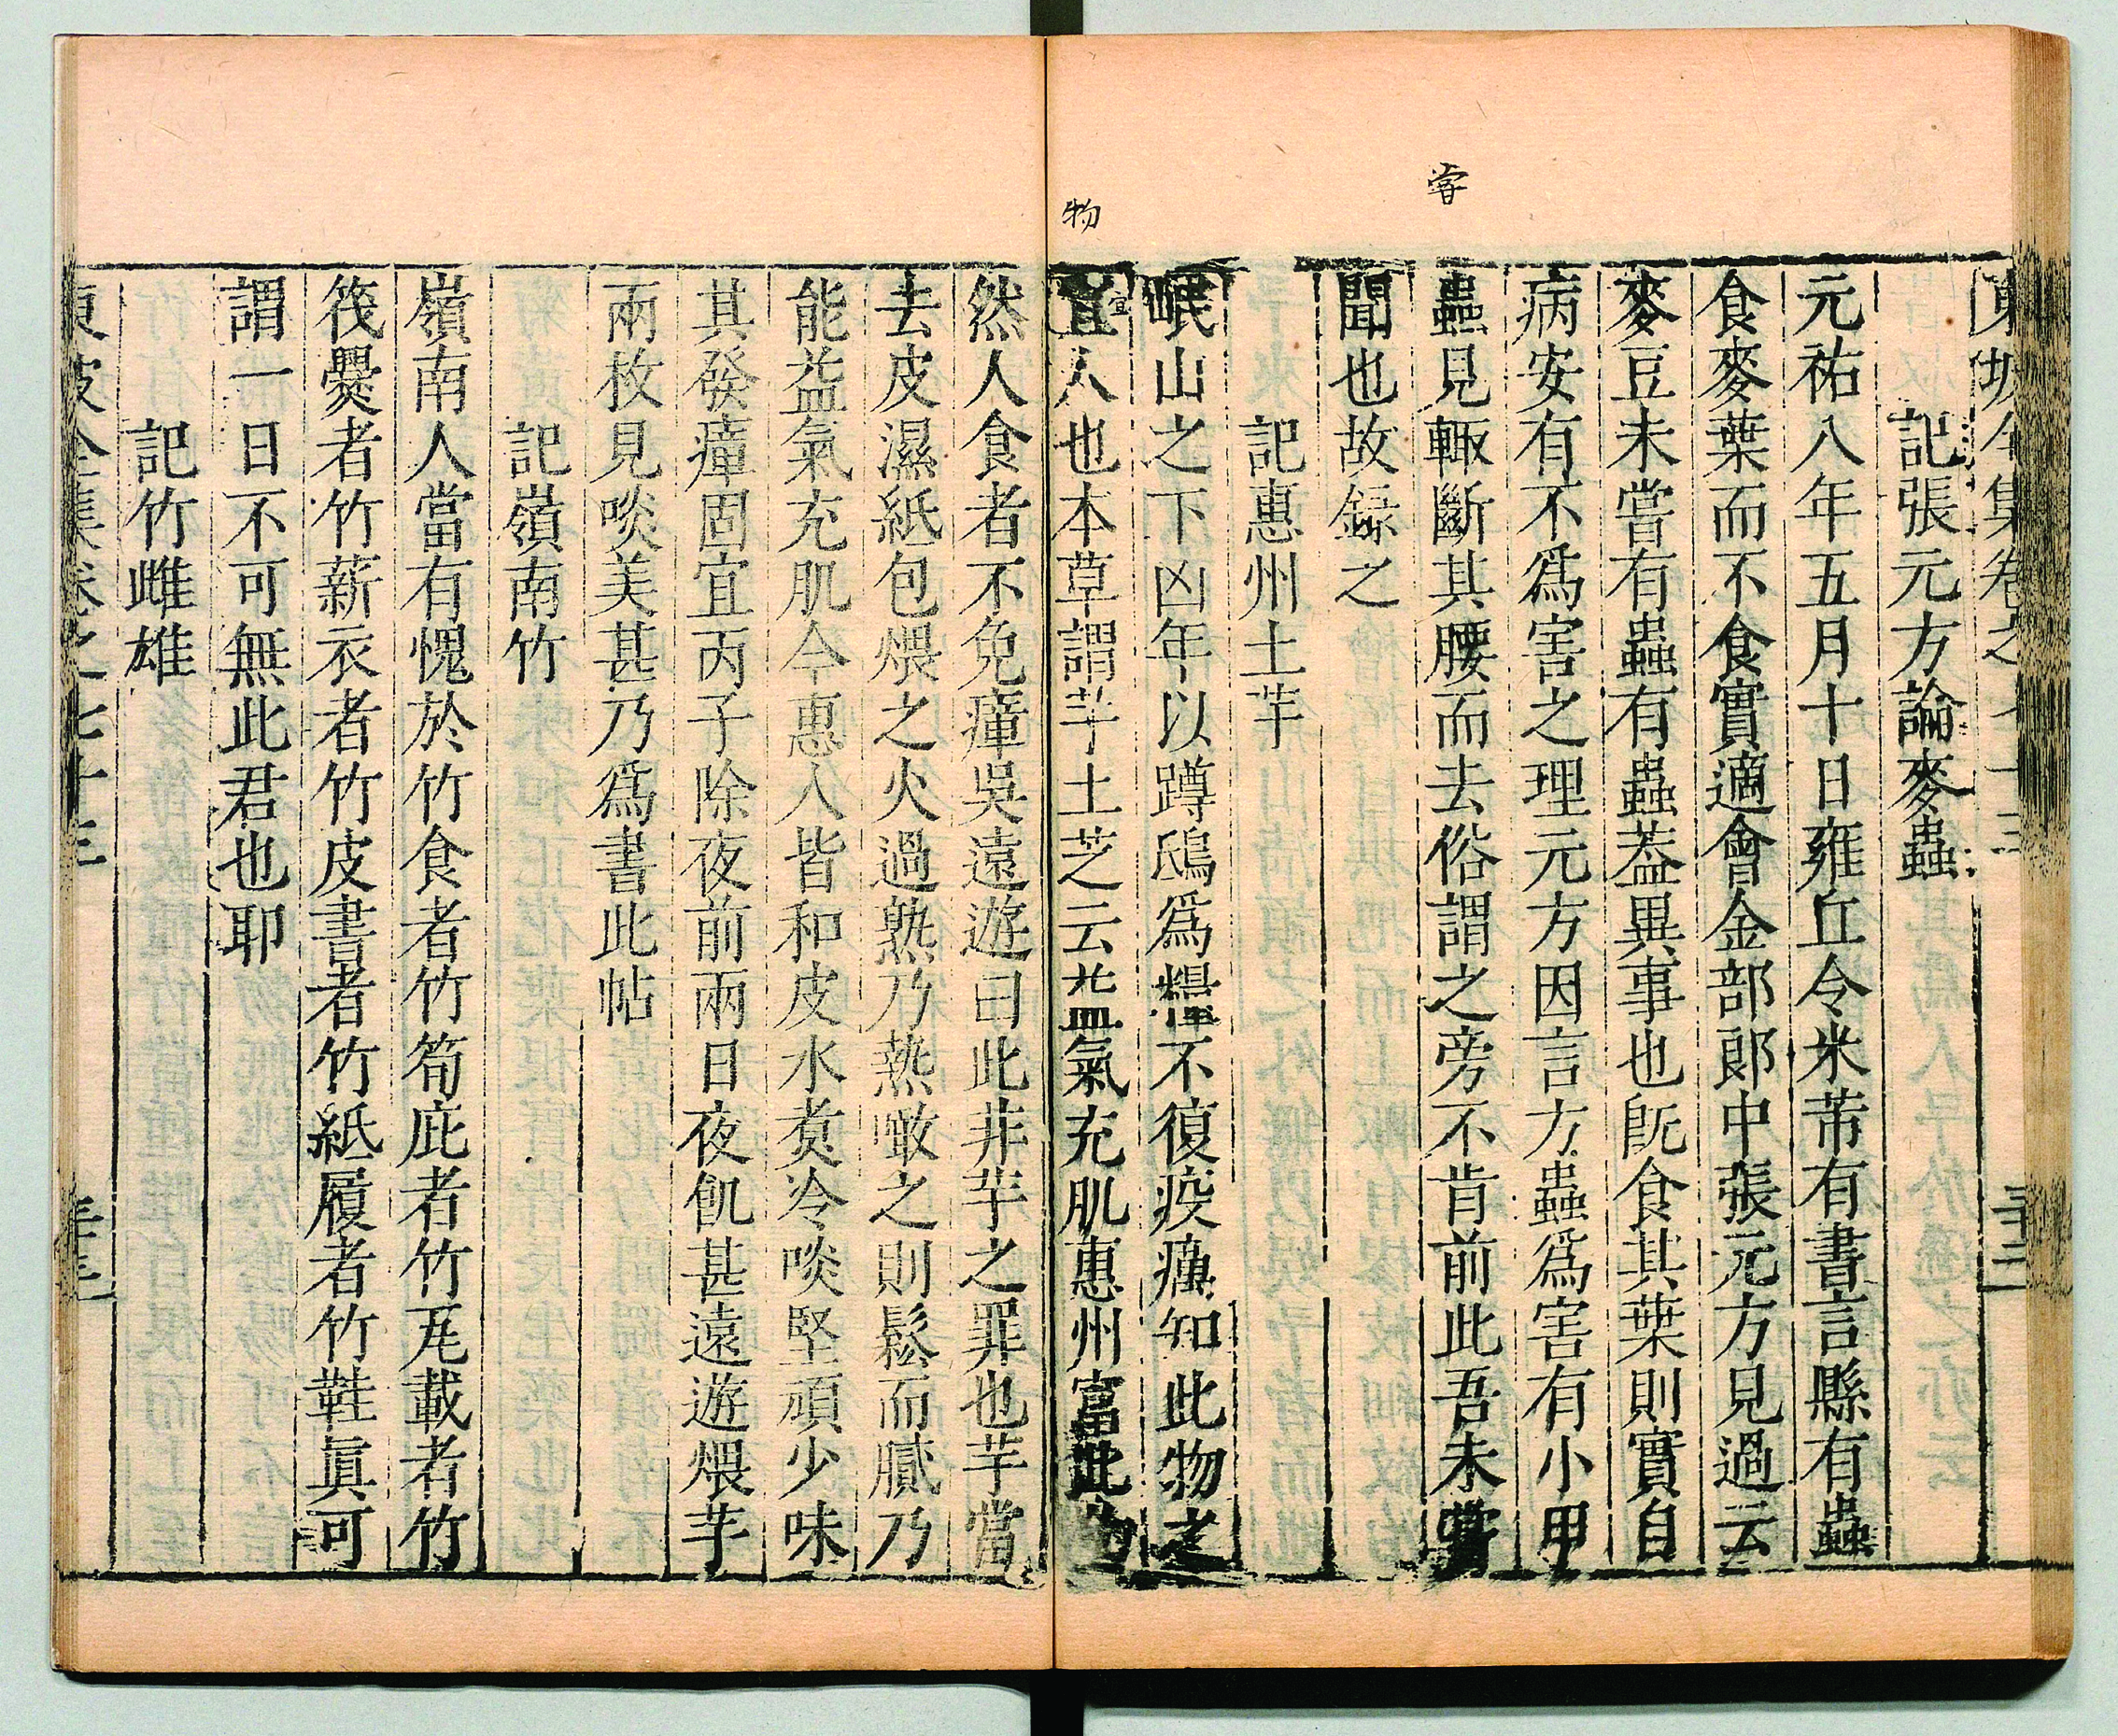 嘗
物
東坡全集卷之七十三
三十二
記張元方論麥蟲
元祐八年五月十日雍丘令米芾有書言縣有蟲
食麥葉而不食實適會金部郎中張元方見過云
麥豆未嘗有蟲有蟲蓋異事也旣食其葉則實自
病安有不爲害之理元方因言方蟲爲害有小甲
蟲見輙斷其腰而去俗謂之旁不肯前此吾未嘗
聞也故録之
記惠州土芋
岷山之下凶年以蹲鴟爲糧不復疫癘知此物之
宜人也本草謂芋土芝云益氣充肌惠州富此物
然人食者不免瘴吳遠遊曰此非芋之罪也芋當
去皮濕紙包煨之火過熟乃熱噉之則鬆而膩乃
能益氣充肌今惠人皆和皮水煑冷啖堅頑少味
其發瘴固宜丙子除夜前兩日夜飢甚遠遊煨芋
兩枚見啖美甚乃爲書此帖
記嶺南竹
嶺南人當有愧於竹食者竹筍庇者竹瓦載者竹
筏爨者竹薪衣者竹皮書者竹紙履者竹鞋眞可
謂一日不可無此君也耶
記竹雌雄
東坡全集卷之七十三